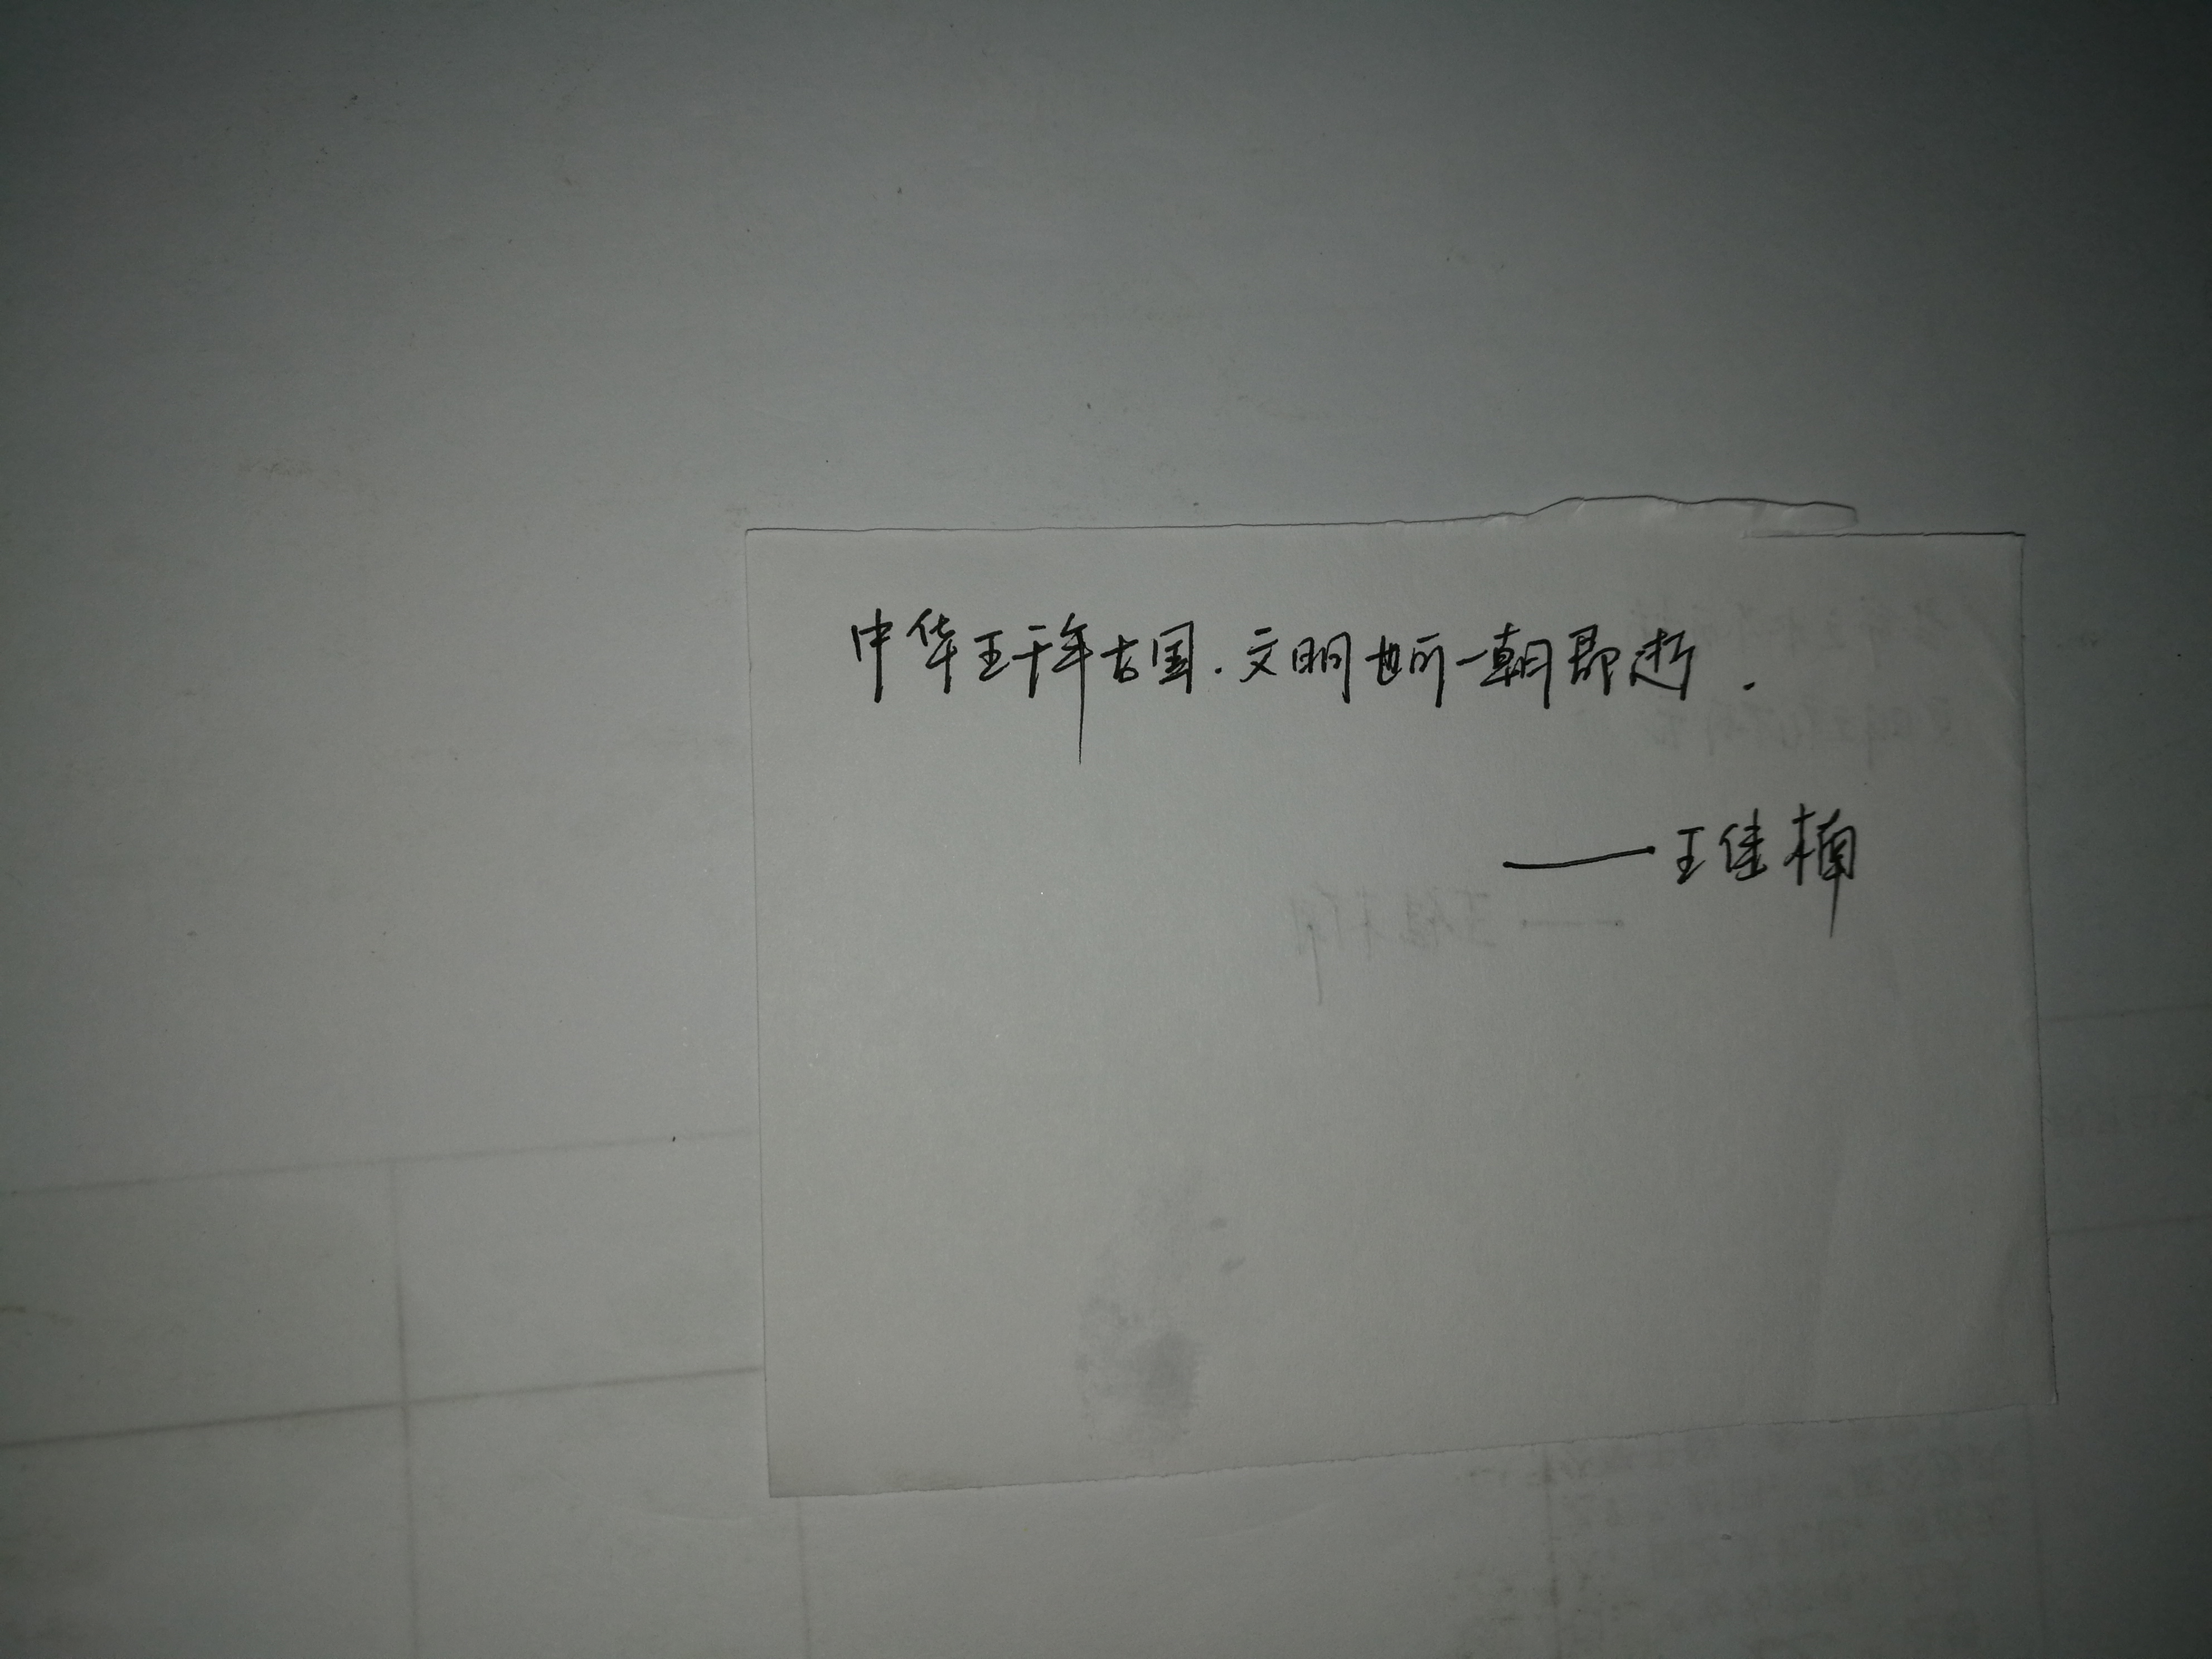 中华五千年古国.文明岂可一朝即逝.
——王佳楠